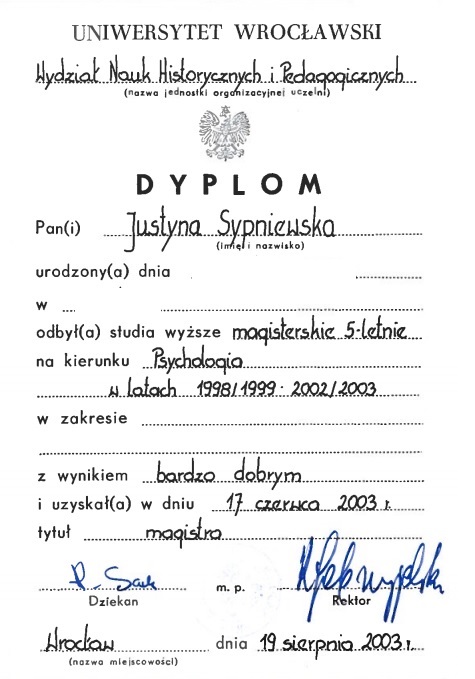 UNIWERSYTET WROCŁAWSKI
Wydział Nauk Historycznych i Pedagogicznych
(nazwa jednostki organizacyjnej uczelni)
DYPLOM
Pan(i) Justyna Sypniewska
(imię i nazwisko)
urodzony(a) dnia
w
odbył(a) studia wyższe magisterskie 5-letnie
na kierunku Psychologia
w latach 1998/1999 - 2002/2003
w zakresie
z wynikiem bardzo dobrym
i uzyskał(a) w dniu 17 czerwca 2003 r.
tytuł magistra
m. p.
Dziekan Rektor
Wrocław dnia 19 sierpnia 2003 r.
(nazwa miejscowości)